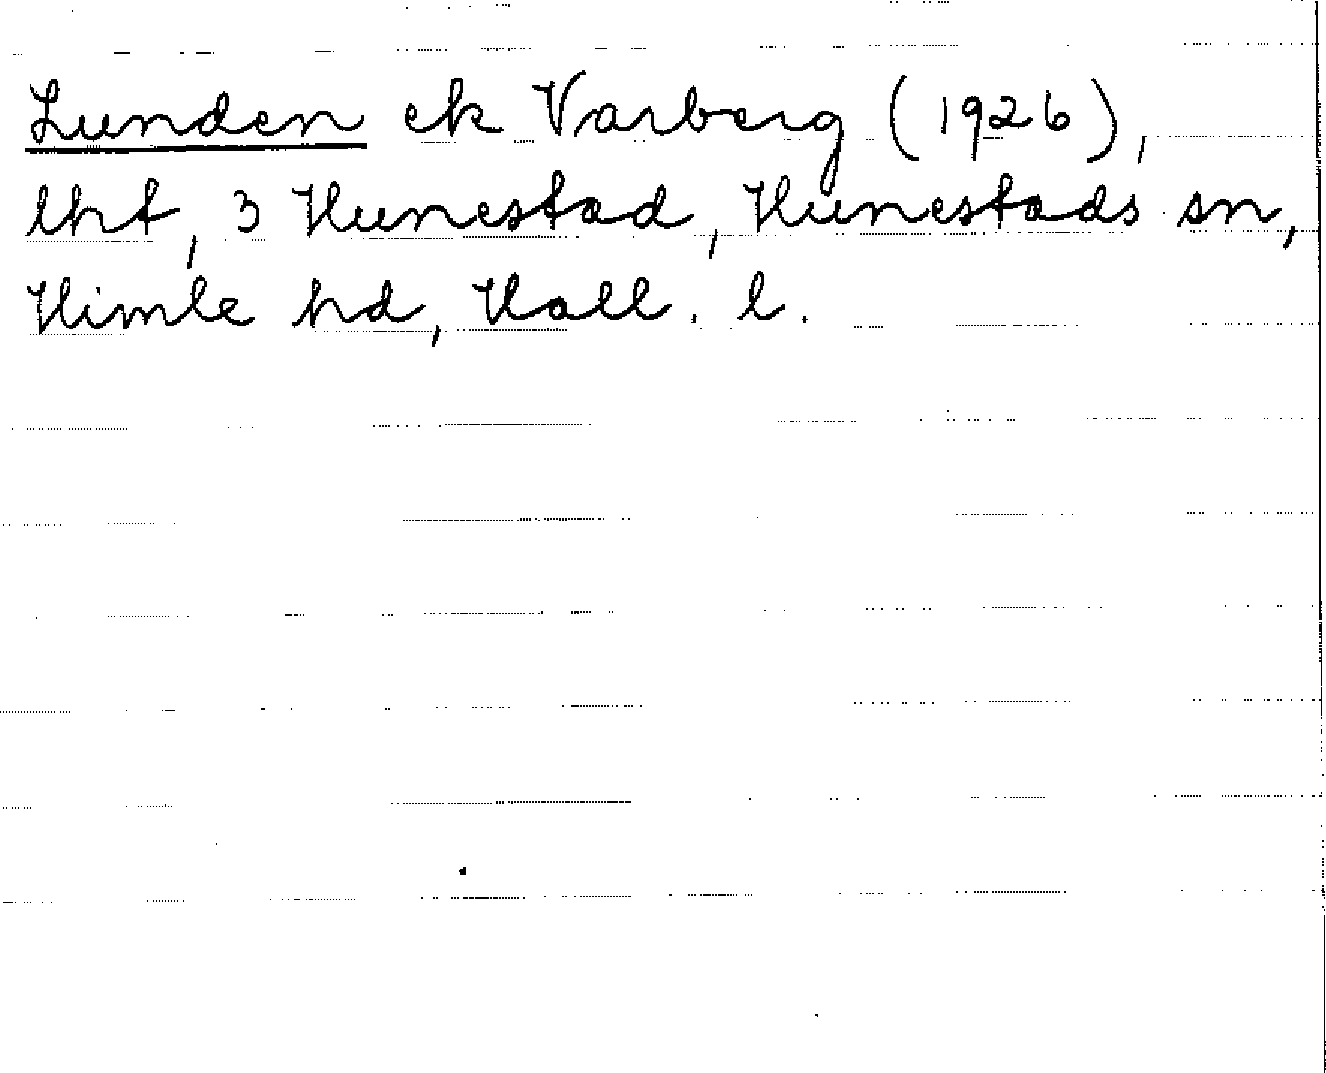 Lunden ek Varberg (1926),
lht, 3 Hunestad, Hunestads sn,
Himle hd, Hall. l.